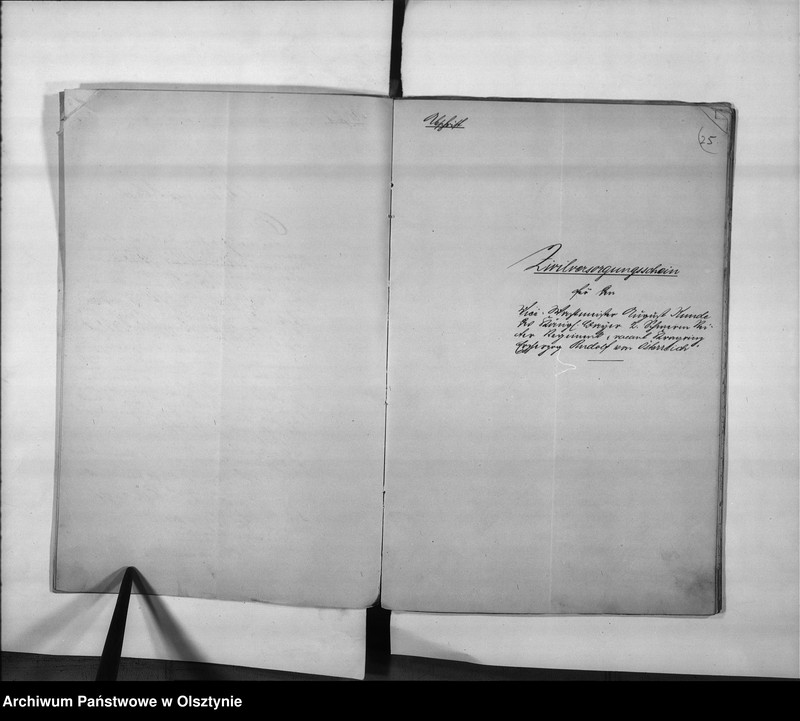 Abschrift
25
Zivilversorgungsschein
für den
Vice-Wachtmeister August Kunde
des Königl. Bayer. 2. Schweren Rei-
ter Regiments, vacant Kronprinz
Erzherzog Rudolf von Österreich.
Archiwum Państwowe w Olsztynie